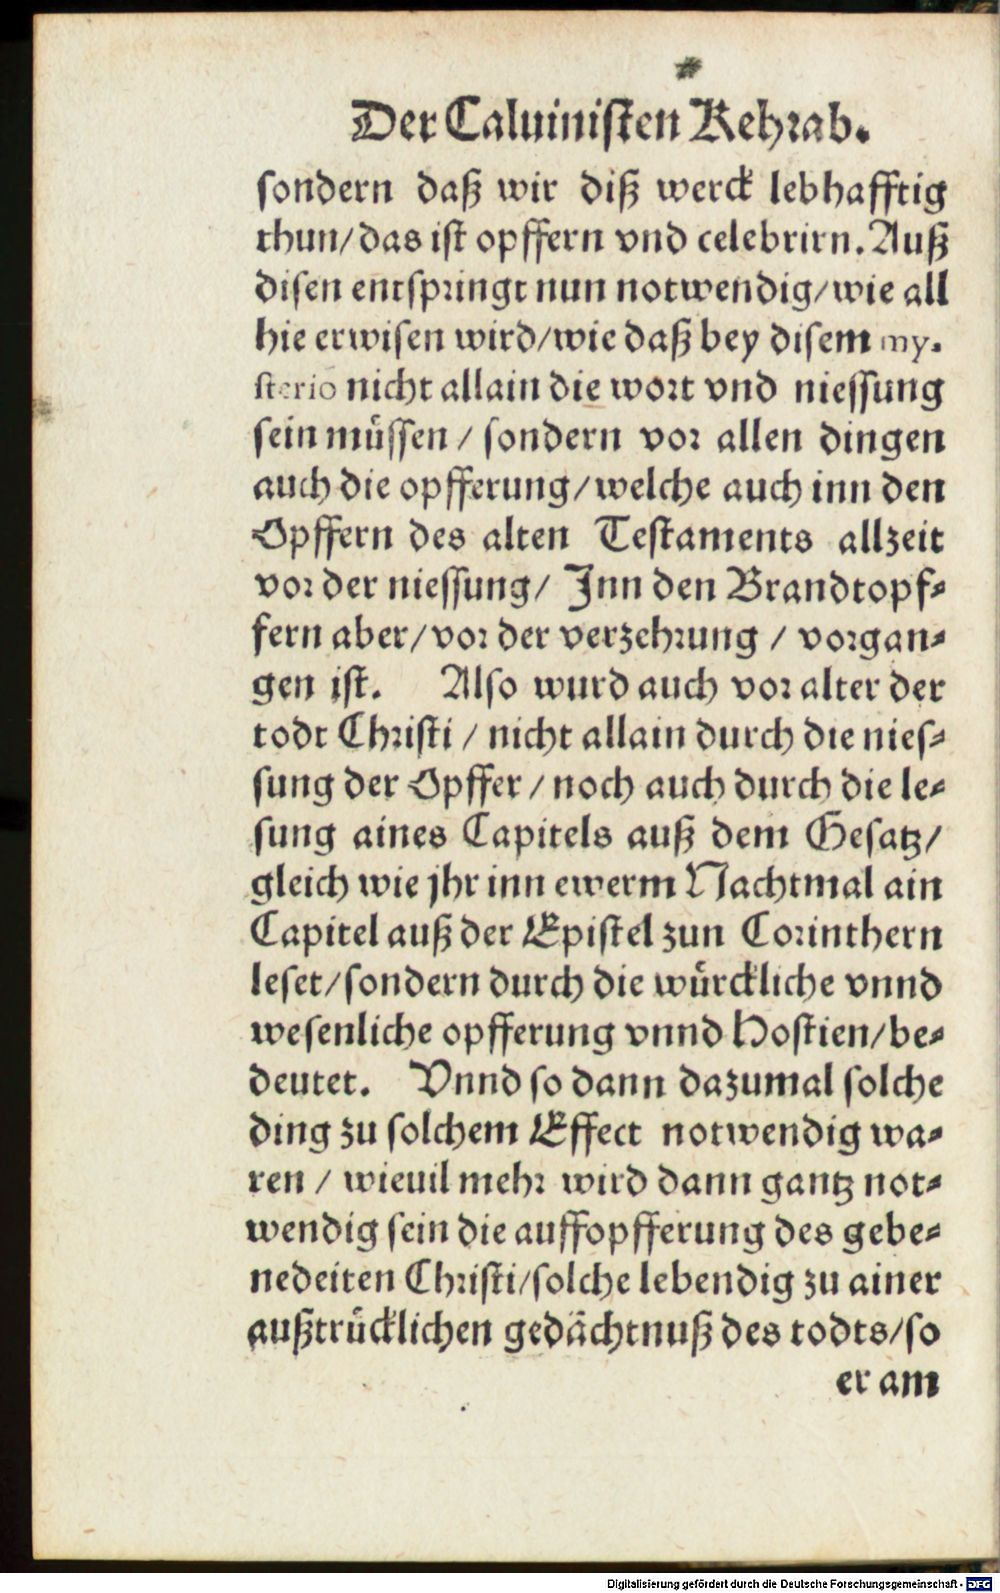 Der Caluinisten Kehrab.
sondern daß wir diß werck lebhafftig
thun/das ist opffern vnd celebrirn. Auß
disen entspringt nun notwendig/wie all
hie erwisen wird/wie daß bey disem my-
sterio nicht allain die wort vnd niessung
sein müssen / sondern vor allen dingen
auch die opfferung/welche auch inn den
Opffern des alten Testaments allzeit
vor der niessung/ Jnn den Brandtopf-
fern aber/vor der verzehrung / vorgan-
gen ist. Also wurd auch vor alter der
todt Christi / nicht allain durch die nies-
sung der Opffer / noch auch durch die le-
sung aines Capitels auß dem Gesatz/
gleich wie jhr inn ewerm Nachtmal ain
Capitel auß der Epistel zun Corinthern
leset/sondern durch die würckliche vnnd
wesenliche opfferung vnnd Hostien/be-
deutet. Vnnd so dann dazumal solche
ding zu solchem Effect notwendig wa-
ren / wieuil mehr wird dann gantz not-
wendig sein die auffopfferung des gebe-
nedeiten Christi/solche lebendig zu ainer
außtrücklichen gedächtnuß des todts/so
er am
Digitalisierung gefördert durch die Deutsche Forschungsgemeinschaft - DFG